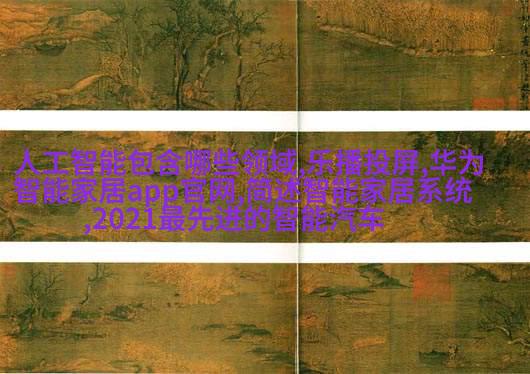 人工智能包含哪些领域,乐播投屏,华为
智能家居app官网,简述智能家居系统
,2021最先进的智能汽车